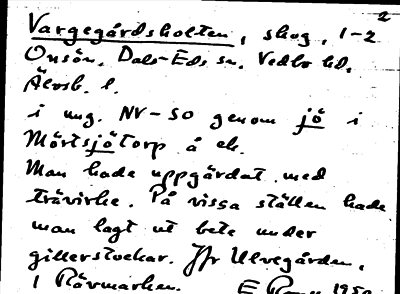 2
Vargegårdsholten, skog, 1-2
Onsön. Dals-Eds sn. Vedbo hd.
Älvsb. l.
i ung. NV-SO genom jö i
Mörtsjötorp å ek.
Man hade uppgärdat med
trävirke. På vissa ställen hade
man lagt ut bete under
gillerstockar. Jfr Ulvegården,
1 Rävmarken.